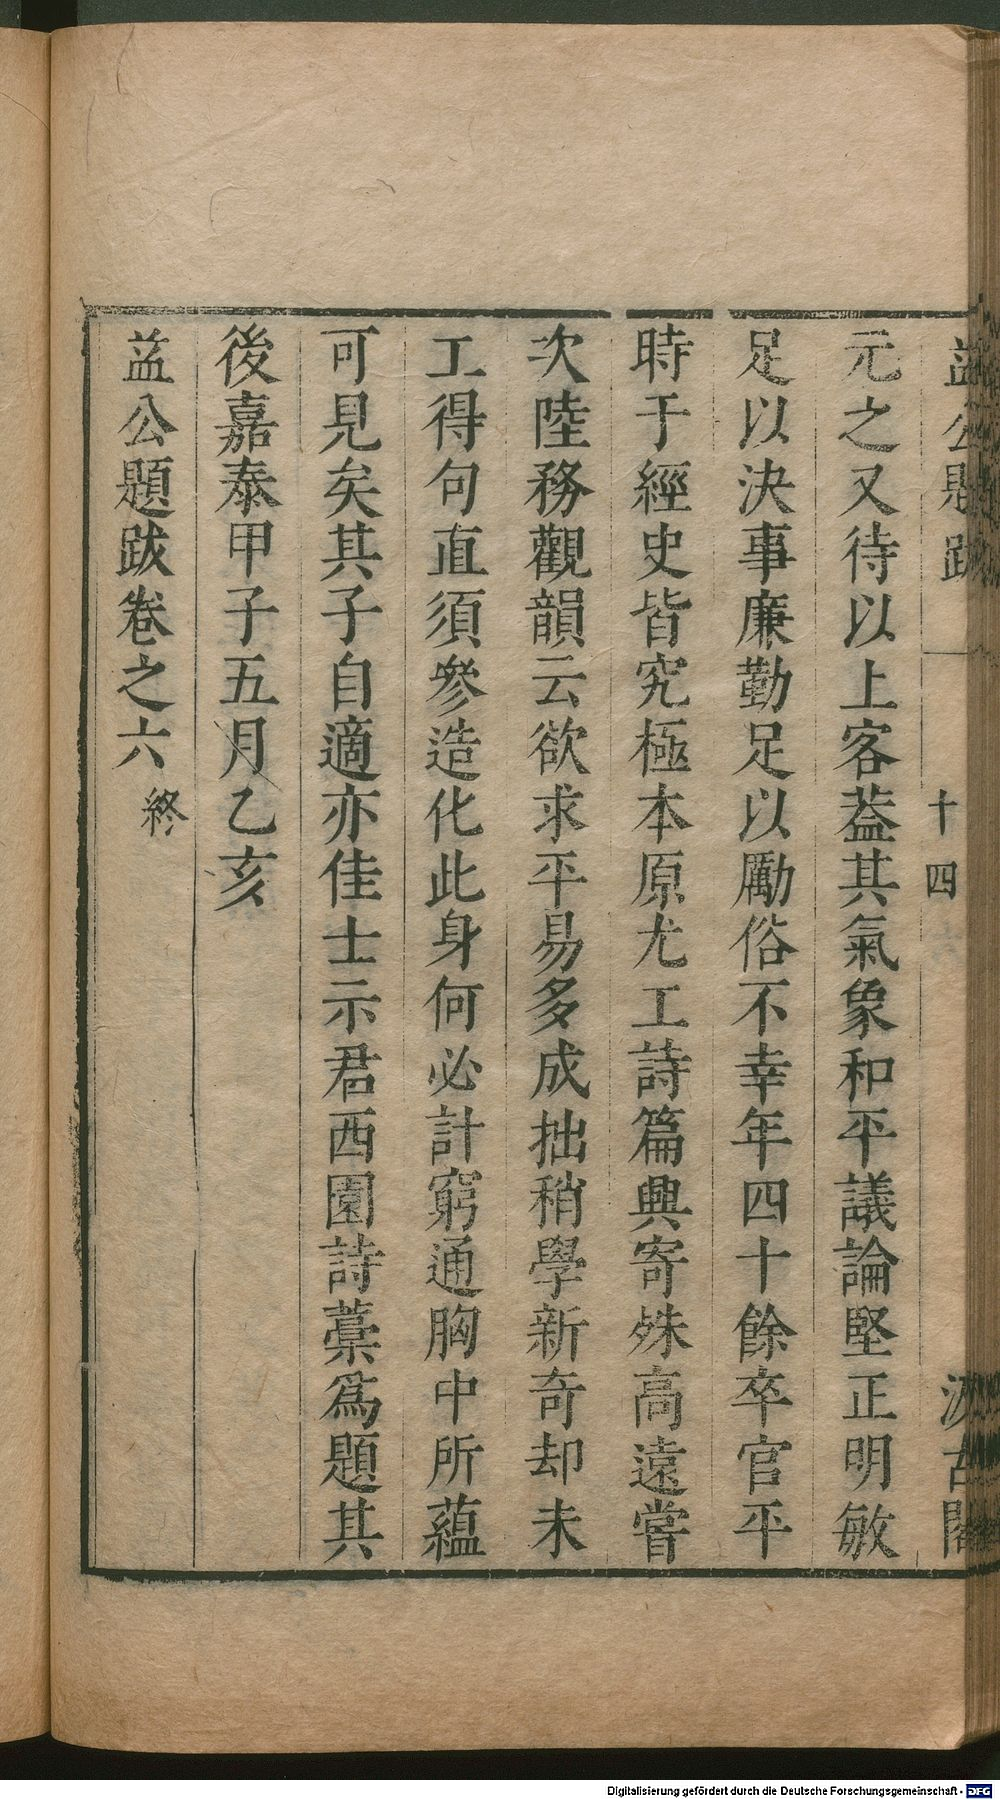 益公題跋
十四
汲古閣
元之又待以上客葢其氣象和平議論堅正明敏
足以決事廉勤足以勵俗不幸年四十餘卒官平
時于經史皆究極本原尤工詩篇興寄殊高遠嘗
次陸務觀韻云欲求平易多成拙稍學新奇却未
工得句直須參造化此身何必計窮通胸中所蘊
可見矣其子自適亦佳士示君西園詩藁爲題其
後嘉泰甲子五月乙亥
益公題跋卷之六 終
Digitalisierung gefördert durch die Deutsche Forschungsgemeinschaft - DFG